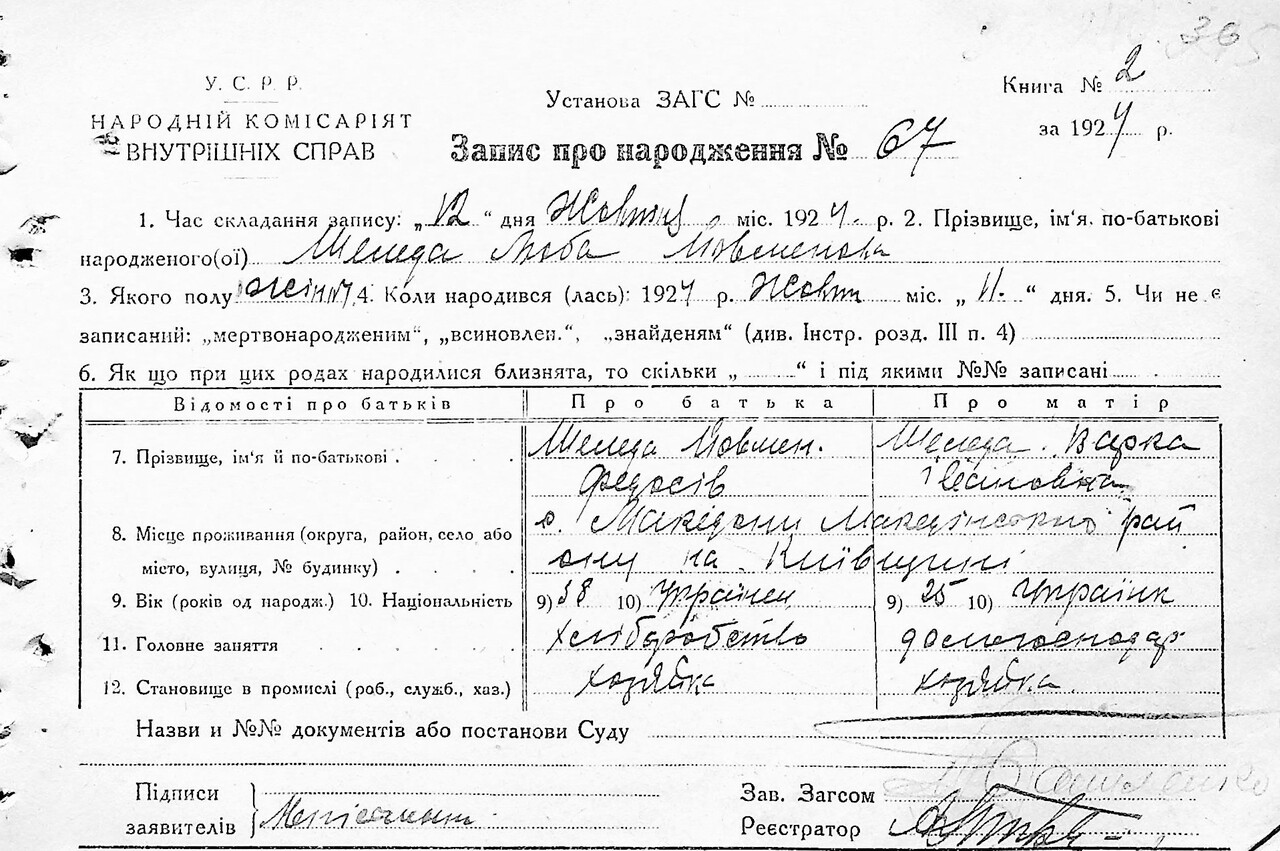 36
У. С. Р. Р.
НАРОДНІЙ КОМІСАРІЯТ
ВНУТРІШНІХ СПРАВ
Установа ЗАГС №
Книга № 2
за 1924 р.
Запис про народження № 67
1. Час складання запису: „12“ дня Жовтня міс. 1924. р. 2. Прізвище, ім'я. по-батькові
народженого(ої) Шеледа Люба Йовменова
3. Якого полу жіноч 4. Коли народився (лась): 1924 р. Жовт міс. „11.“ дня. 5. Чи не є
записаний: „мертвонародженим“, „всиновлен.“, „знайденям“ (див. Інстр. розд. III п. 4)
6. Як що при цих родах народилися близнята, то скільки „ “ і під якими №№ записані
Відомості про батьків Про батька Про матір
7. Прізвище, ім'я й по-батькові Шеледа Йовмен. Федосів Шеледа Варка
8. Місце проживання (округа, район, село або місто, вулиця, № будинку) с. Македони Македонського район
ону на Київщині
9. Вік (років од народж.) 10. Національність 9) 38 10) Українец 9) 25 10) Українк
11. Головне заняття хліборобство домогосподар
12. Становище в промислі (роб., служб., хаз.) хозяйка хозяйка
Назви и №№ документів або постанови Суду
Підписи
заявителів
Зав. Загсом
Реєстратор